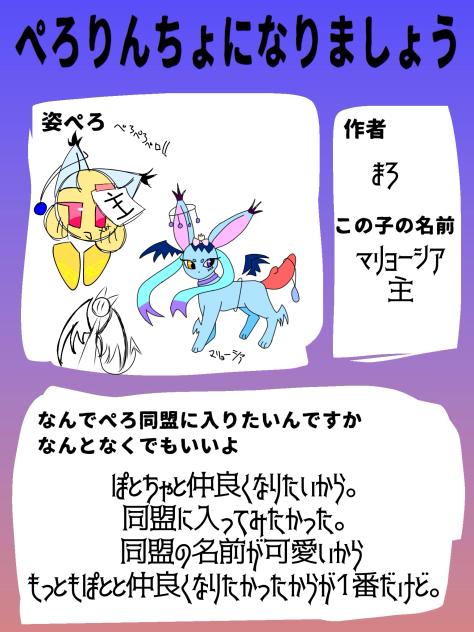 ぺろりんちょになりましょう
姿ぺろ
ぺろぺろべロリ
主
マリョーシア
作者
まろ
この子の名前
マリョーシア
主
なんでぺろ同盟に入りたいんですか
なんとなくでもいいよ
ぽとちゃと仲良くなりたいから。
同盟に入ってみたかった。
同盟の名前が可愛いから
もっともぽとと仲良くなりたかったからが1番だけど。